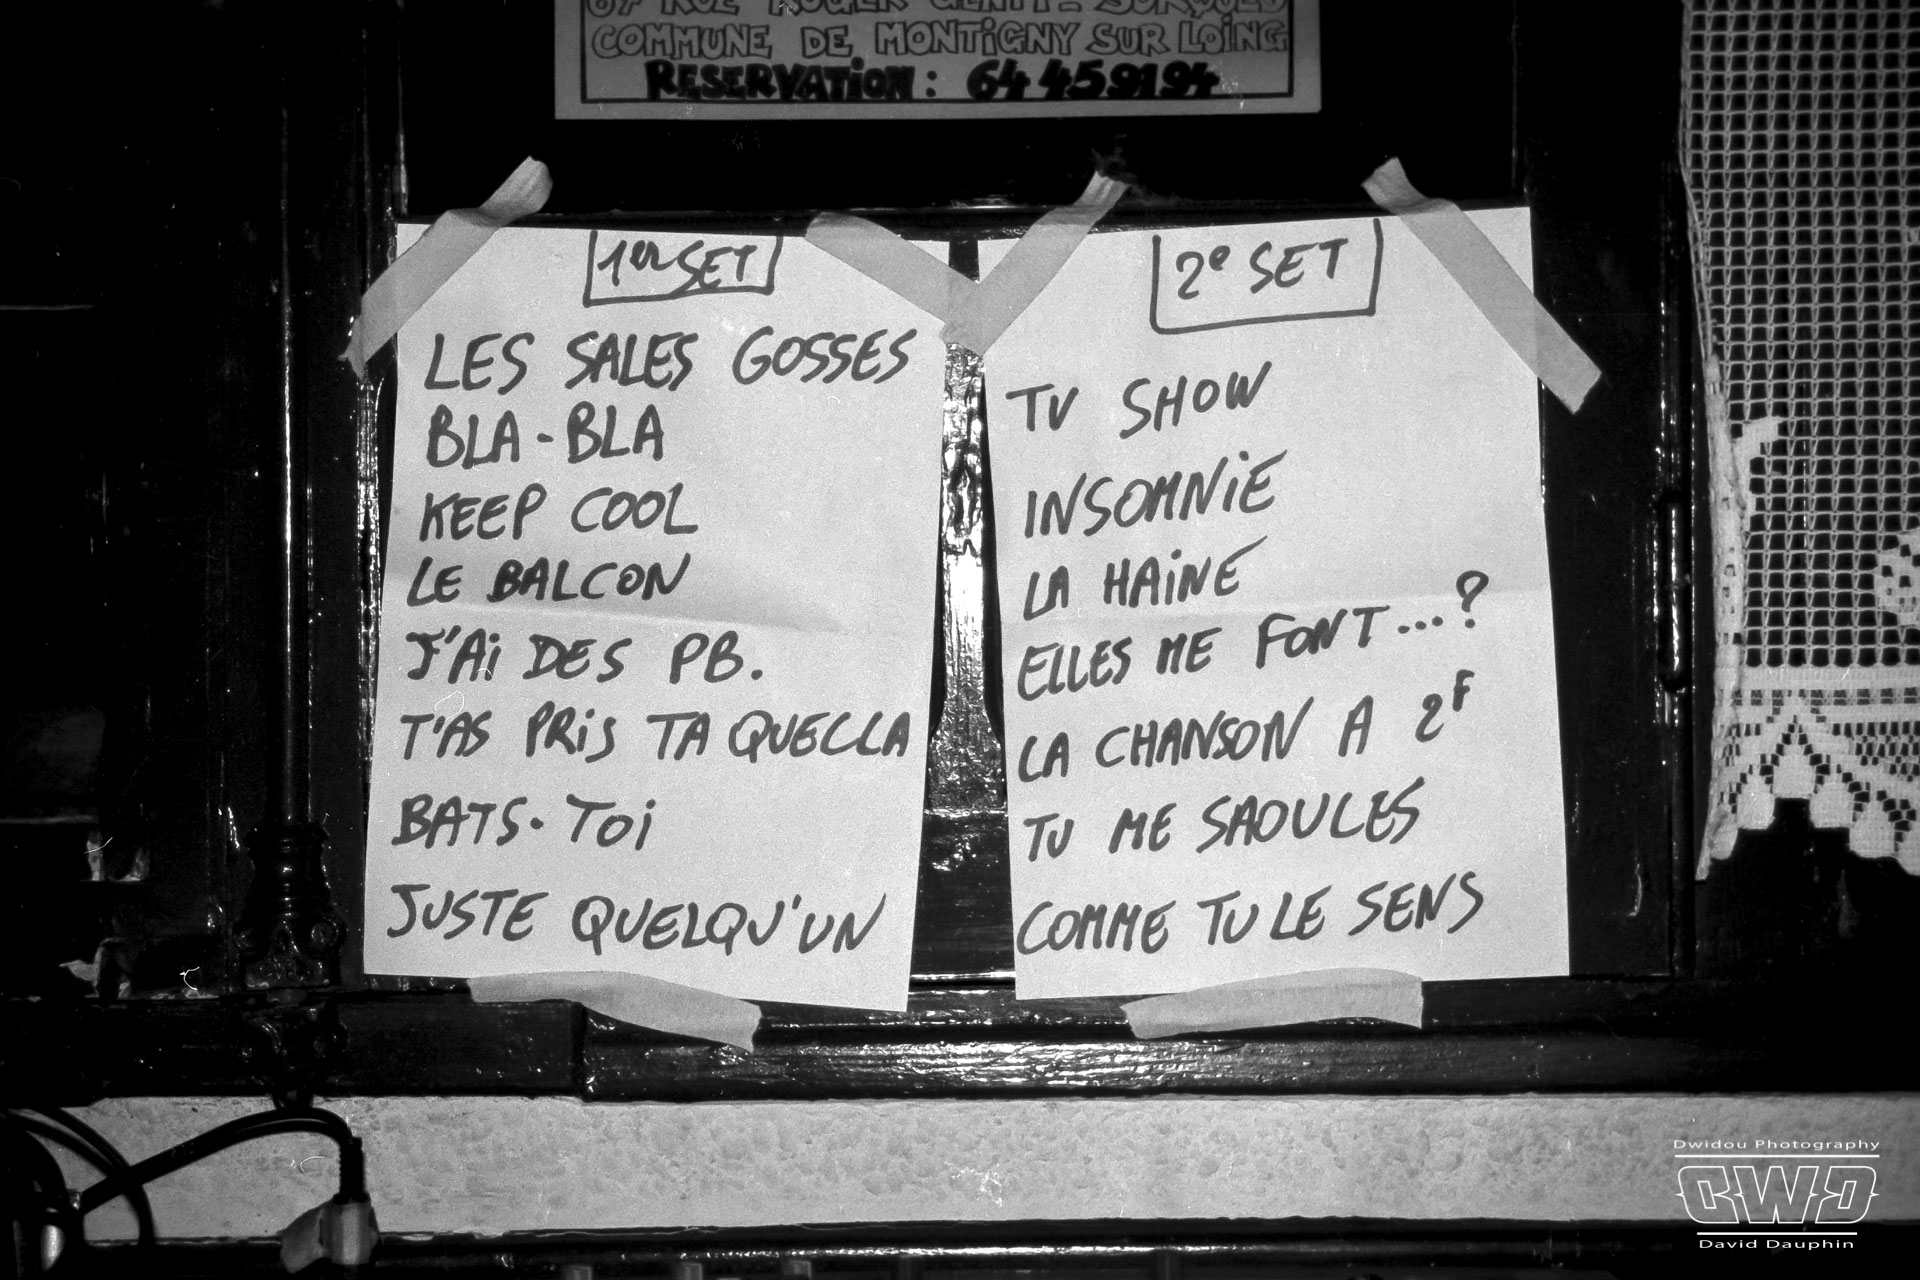 67 RUE ROGER GENTY - SORQUES
COMMUNE DE MONTIGNY SUR LOING
RESERVATION : 64 459194
1er SET
LES SALES GOSSES
BLA-BLA
KEEP COOL
LE BALCON
J'Ai DES PB.
T'AS PRiS TA QUECLLA
BATS-Toi
JUSTE QUELQU'UN
2e SET
TV SHOW
INSOMNiE
LA HAiNE
ELLES ME FONT...?
LA CHANSON A 2F
TU ME SAOULES
COMME TU LE SENS
Dwidou Photography
DWD
David Dauphin